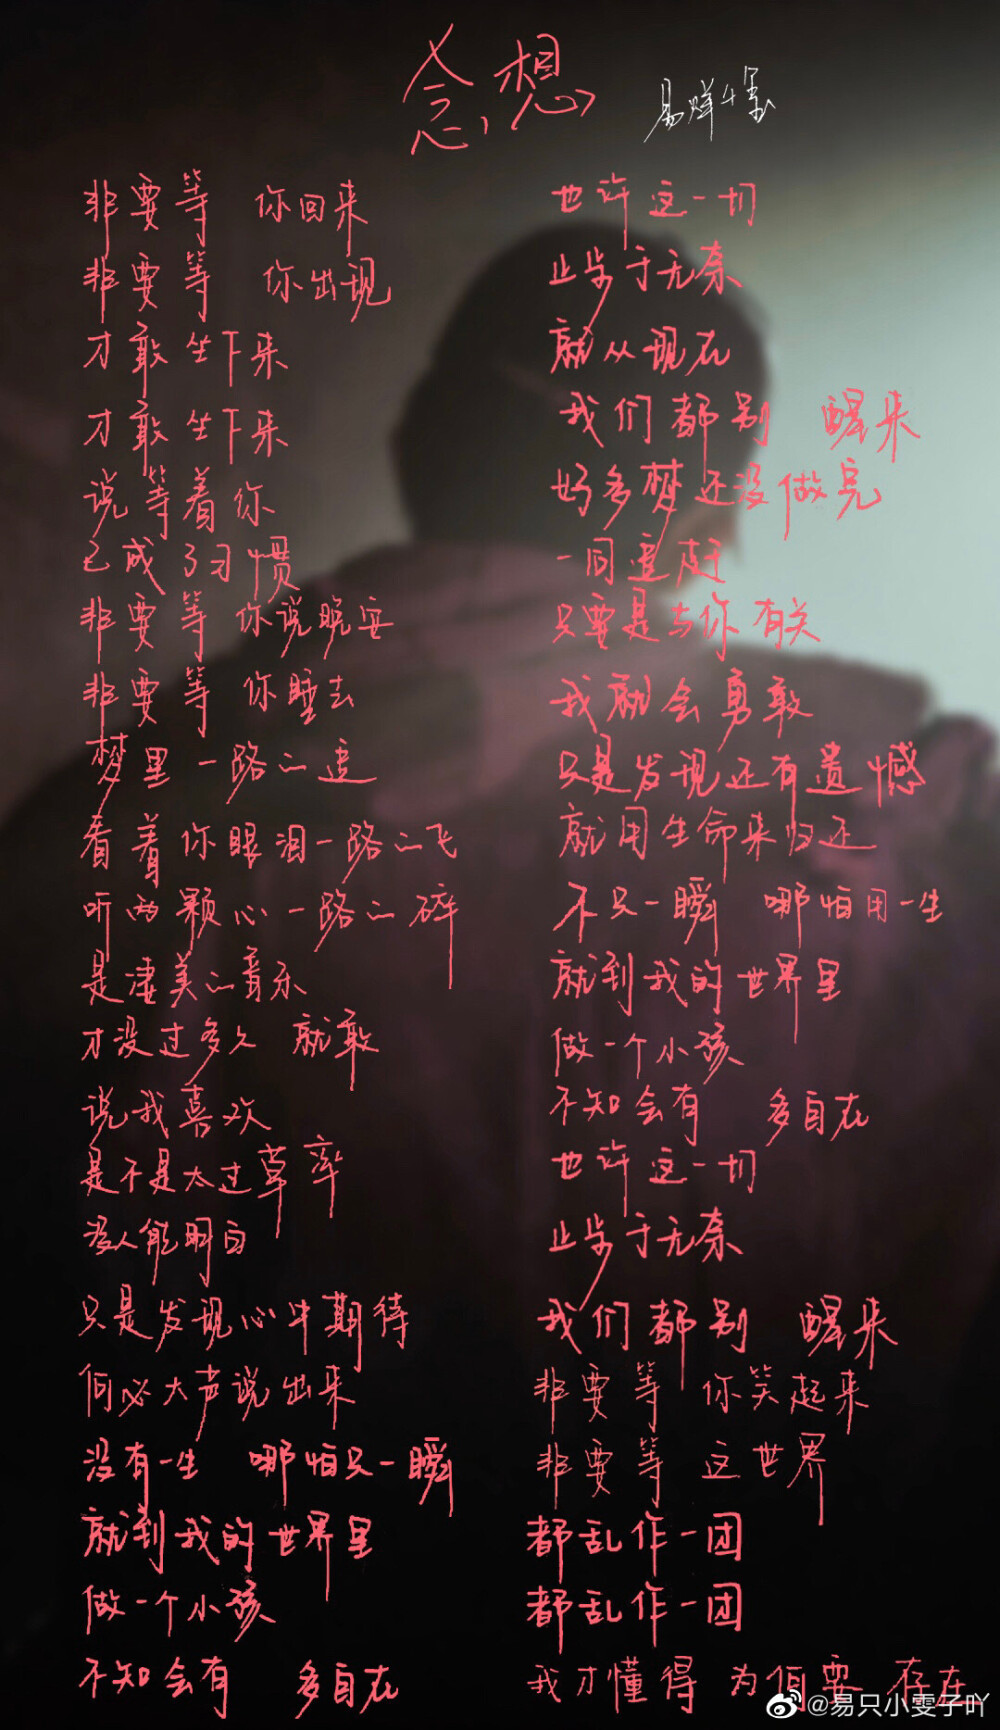 念想
易烊千玺
非要等 你回来
非要等 你出现
才敢坐下来
才敢坐下来
说等着你
已成了习惯
非要等 你说晚安
非要等 你睡去
梦里一路一追
看着你眼泪一路一飞
听两颗心一路一碎
是凄美一音乐
才没过多久 就敢
说我喜欢
是不是太过草率
没人能明白
只是发现心中期待
何必大声说出来
没有一生 哪怕只一瞬
就到我的世界里
做一个小孩
不知会有 多自在
也许这一切
止步于无奈
就从现在
我们都别 醒来
好多梦还没做完
一同追赶
只要是与你有关
我就会勇敢
只是发现还有遗憾
就用生命来归还
不只一瞬 哪怕用一生
就到我的世界里
做一个小孩
不知会有 多自在
也许这一切
止步于无奈
我们都别 醒来
非要等 你笑起来
非要等 这世界
都乱作一团
都乱作一团
我才懂得 为何要存在
@易只小雯子吖